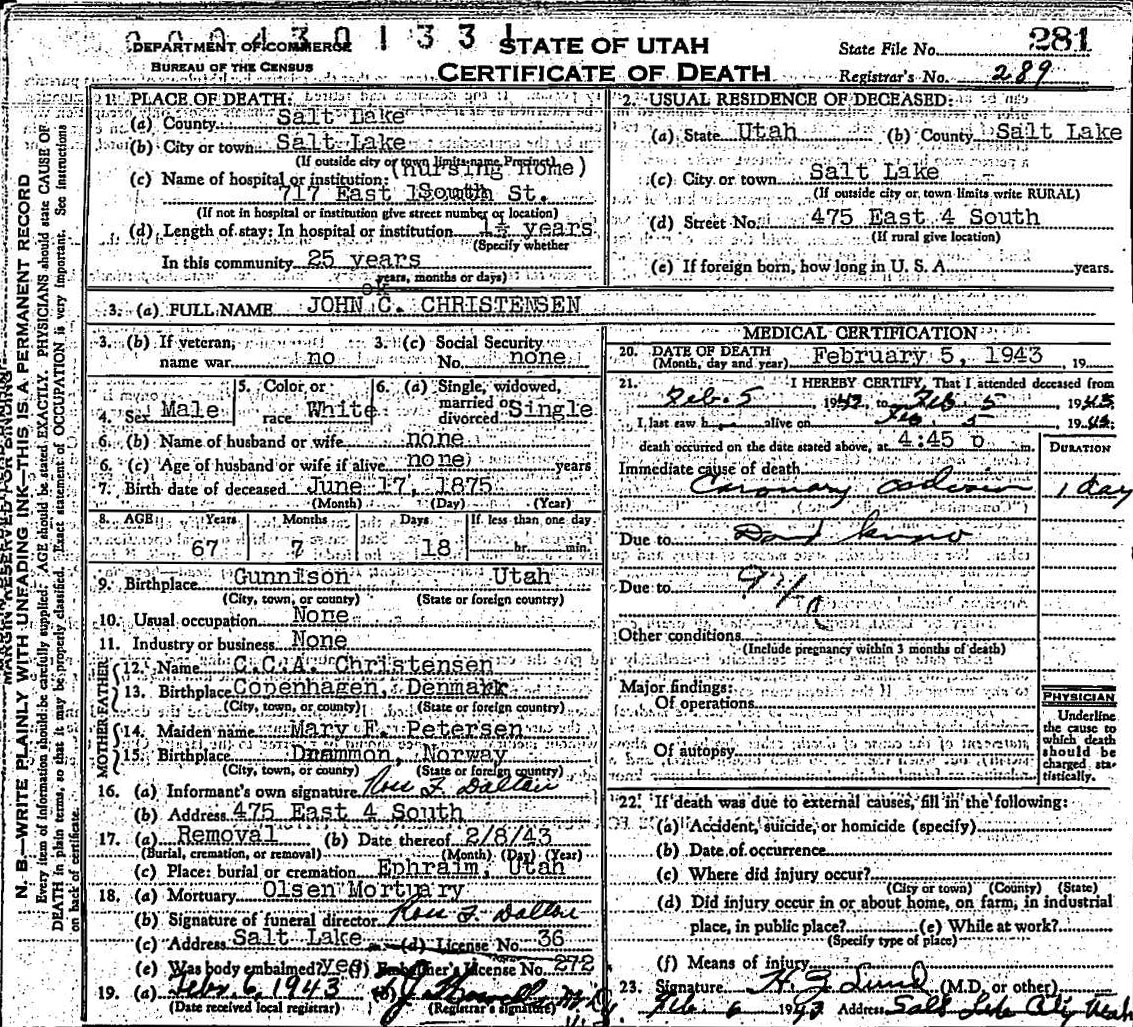 DEPARTMENT OF COMMERCE
BUREAU OF THE CENSUS
STATE OF UTAH
CERTIFICATE OF DEATH
State File No. 281
Registrar's No. 289
N. B.—WRITE PLAINLY WITH UNFADING INK—THIS IS A PERMANENT RECORD
Every item of information should be carefully supplied. AGE should be stated EXACTLY. PHYSICIANS should state CAUSE OF
DEATH in plain terms, so that it may be properly classified. Exact statement of OCCUPATION is very important. See instructions
on back of certificate.
MARGIN RESERVED FOR BINDING
1. PLACE OF DEATH:
(a) County Salt Lake
(b) City or town Salt Lake
(If outside city or town limits name Precinct)
(c) Name of hospital or institution: (nursing home)
717 East 1 South St.
(If not in hospital or institution give street number or location)
(d) Length of stay: In hospital or institution 1½ years
(Specify whether
In this community 25 years
years, months or days)
2. USUAL RESIDENCE OF DECEASED:
(a) State Utah (b) County Salt Lake
(c) City or town Salt Lake
(If outside city or town limits write RURAL)
(d) Street No. 475 East 4 South
(If rural give location)
(e) If foreign born, how long in U. S. A. years.
ok
3. (a) FULL NAME JOHN C. CHRISTENSEN
3. (b) If veteran, name war no
3. (c) Social Security No. none
4. Sex Male
5. Color or race White
6. (a) Single, widowed, married or divorced Single
6. (b) Name of husband or wife none
6. (c) Age of husband or wife if alive none years
7. Birth date of deceased June 17, 1875
(Month) (Day) (Year)
8. AGE Years Months Days If less than one day
67 7 18 hr. min.
9. Birthplace Gunnison Utah
(City, town, or county) (State or foreign country)
10. Usual occupation None
11. Industry or business None
FATHER
12. Name C.C.A. Christensen
13. Birthplace Copenhagen, Denmark
(City, town, or county) (State or foreign country)
MOTHER
14. Maiden name Mary E. Petersen
15. Birthplace Drammon, Norway
(City, town, or county) (State or foreign country)
16. (a) Informant's own signature Ross F Dalton
(b) Address 475 East 4 South
17. (a) Removal (b) Date thereof 2/8/43
(Burial, cremation, or removal) (Month) (Day) (Year)
(c) Place: burial or cremation Ephraim, Utah
18. (a) Mortuary Olsen Mortuary
(b) Signature of funeral director Ross F. Dalton
(c) Address Salt Lake (d) License No. 36
(e) Was body embalmed? yes (f) Embalmer's License No. 272
19. (a) Febr. 6, 1943 (b)
(Date received local registrar) (Registrar's signature)
MEDICAL CERTIFICATION
20. DATE OF DEATH
(Month, day and year) February 5, 1943, 19
21. I HEREBY CERTIFY, That I attended deceased from
Feb. 5, 1942, to Feb 5, 1943
I last saw h alive on Feb. 5, 1943;
death occurred on the date stated above, at 4:45 p m.
DURATION
Immediate cause of death
Coronary 1 day
Due to
Due to
Other conditions
(Include pregnancy within 3 months of death)
Major findings:
Of operations
Of autopsy
PHYSICIAN
Underline
the cause to
which death
should be
charged sta-
tistically.
22. If death was due to external causes, fill in the following:
(a) Accident, suicide, or homicide (specify)
(b) Date of occurrence
(c) Where did injury occur?
(City or town) (County) (State)
(d) Did injury occur in or about home, on farm, in industrial
place, in public place? (e) While at work?
(Specify type of place)
(f) Means of injury
23. Signature H Z Lund (M.D. or other)
Feb 6 1943 Address Salt Lake City Utah